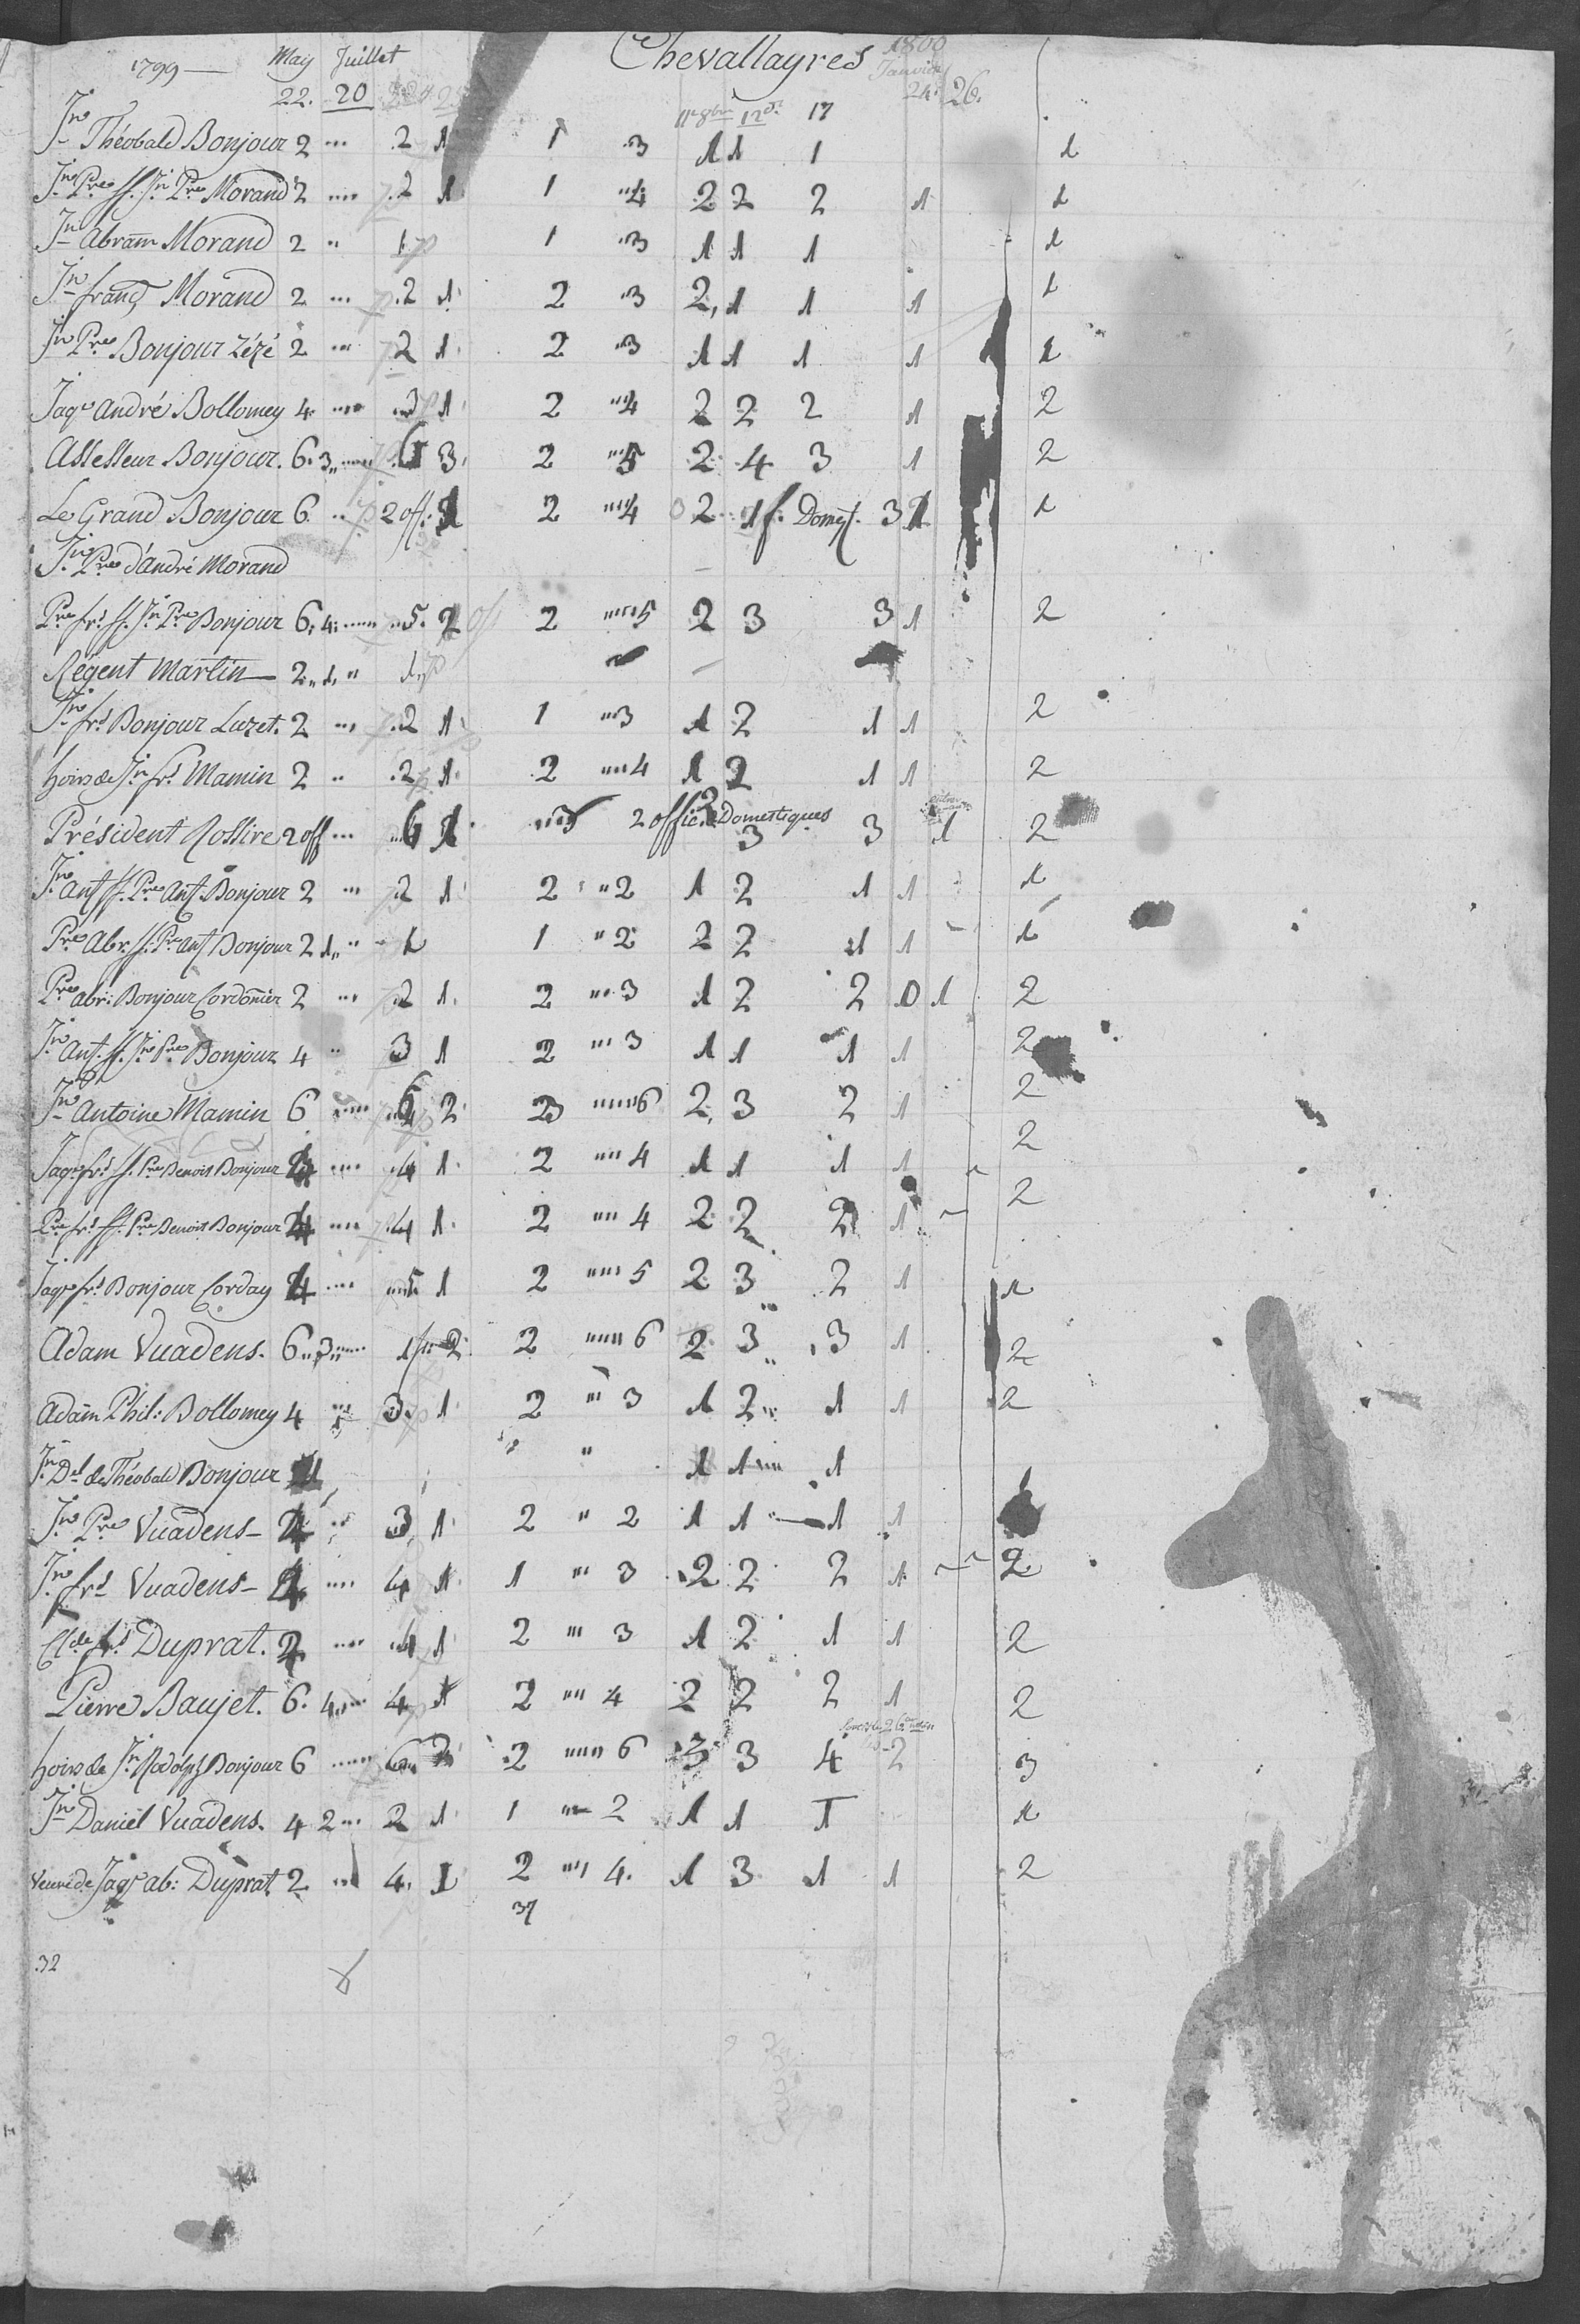 Chevallayres
1799 — May Juillet 1800 Janvier
22. 20 11e 8bre 12 dt 17 24. 26.
Jn Théobald Bonjour 2 ... .2 1 1 .3 1 1 1 1
Jn Pre ff. Jn Pre Morand 2 .... .2 1 1 "4 2 2 2 1 1
Jn Abram Morand 2 .. 1. 1 .3 1 1 1 1
Jn franç Morand 2 ... .2 1. 2 .3 2, 1 1 1 1
Jn Pre Bonjour Zézé 2 ... 2 1. 2 "3 1 1 1 1 1
Jaqs André Bollomey 4. .... .3 1. 2 "4 2 2 2 1 2
Assesseur Bonjour. 6. 3,, ..... .6 3. 2 "5 2. 4. 3 1 2
Le Grand Bonjour 6. .. 2 off: 1 2 "4 2 1 f. Domest. 3 1 1
Jn Pre d'André Morand
Pre frs ff. Jn Pre Bonjour 6, 4: ..... ..5. 2 2 ""5 2 3 3 1 2
Régent Martin — 2,, 1,, " 1.
Jn frs Bonjour Luzet. 2 ... .2 1. 1 "3 1 2 1 1 2
hoirs de Jn frs Mamin 2 .. .2 1. 2 ""4 1 2 1 1 2
Président Rossire 2 off ... 6 1. 2 offic. 2 Domestiques 3 3 1 2
Jn Ant ff. Pre Ant. Bonjour 2 ... .2 1. 2 "2 1 2 1 1 1
Pre Abr. ff. Pre Ant Bonjour 2 1,, .. 1 1 "2 2 2 1 1 1
Pre abr: Bonjour Cordonnier 2 ... .2 1. 2 "3 1 2 2 0 1 2
Jn Ant. ff. Jn Pre Bonjour 4 .. 3 1 2 "'3 1 1 1 1 2
Jn Antoine Mamin 6 ..... 6 2. 23 """6 2, 3 2 1 2
Jaqs frs ff. Pre Benoit Bonjour 4 .... .4 1. 2 ""4 1 1 1 1 2
Pre frs ff. Pre Benoit Bonjour 4 .... .4 1. 2 ""4 2 2 2 1 2
Jaqs frs Bonjour Corday 4 .... 5 1 2 ""5 2 3 2 1 1
Adam Vuadens. 6,, 3 .... 2 2 """6 2 3 3 1 2
Adam Phil: Bollomey 4 ... 3. 1. 2 "'3 1 2 1 1 2
Jn Del de Théobald Bonjour 1 " 1 1 1
Jn Pre Vuadens – 4 ... 3 1. 2 "2 1 1 — 1 1
Jn frs Vuadens – 4 .... 4 1. 1 "'3 2 2 2 1 2
Clde frs Duprat. 4 .... .4 1 2 "'3 1 2 1 1 2
Pierre Baujet. 6. 4,, ... 4 1 2 ""4 2 2 2 1 2
hoirs de Jn Rodolph Bonjour 6 ..... 6 2 2 """6 3 3 4 2 3
Jn Daniel Vuadens. 4 2 ... 2 1. 1 "2 1 1 1 1
Veuve de Jaqs ab: Duprat. 2 ... 4. 1 2 "'4. 1 3 1 1 2
37
32